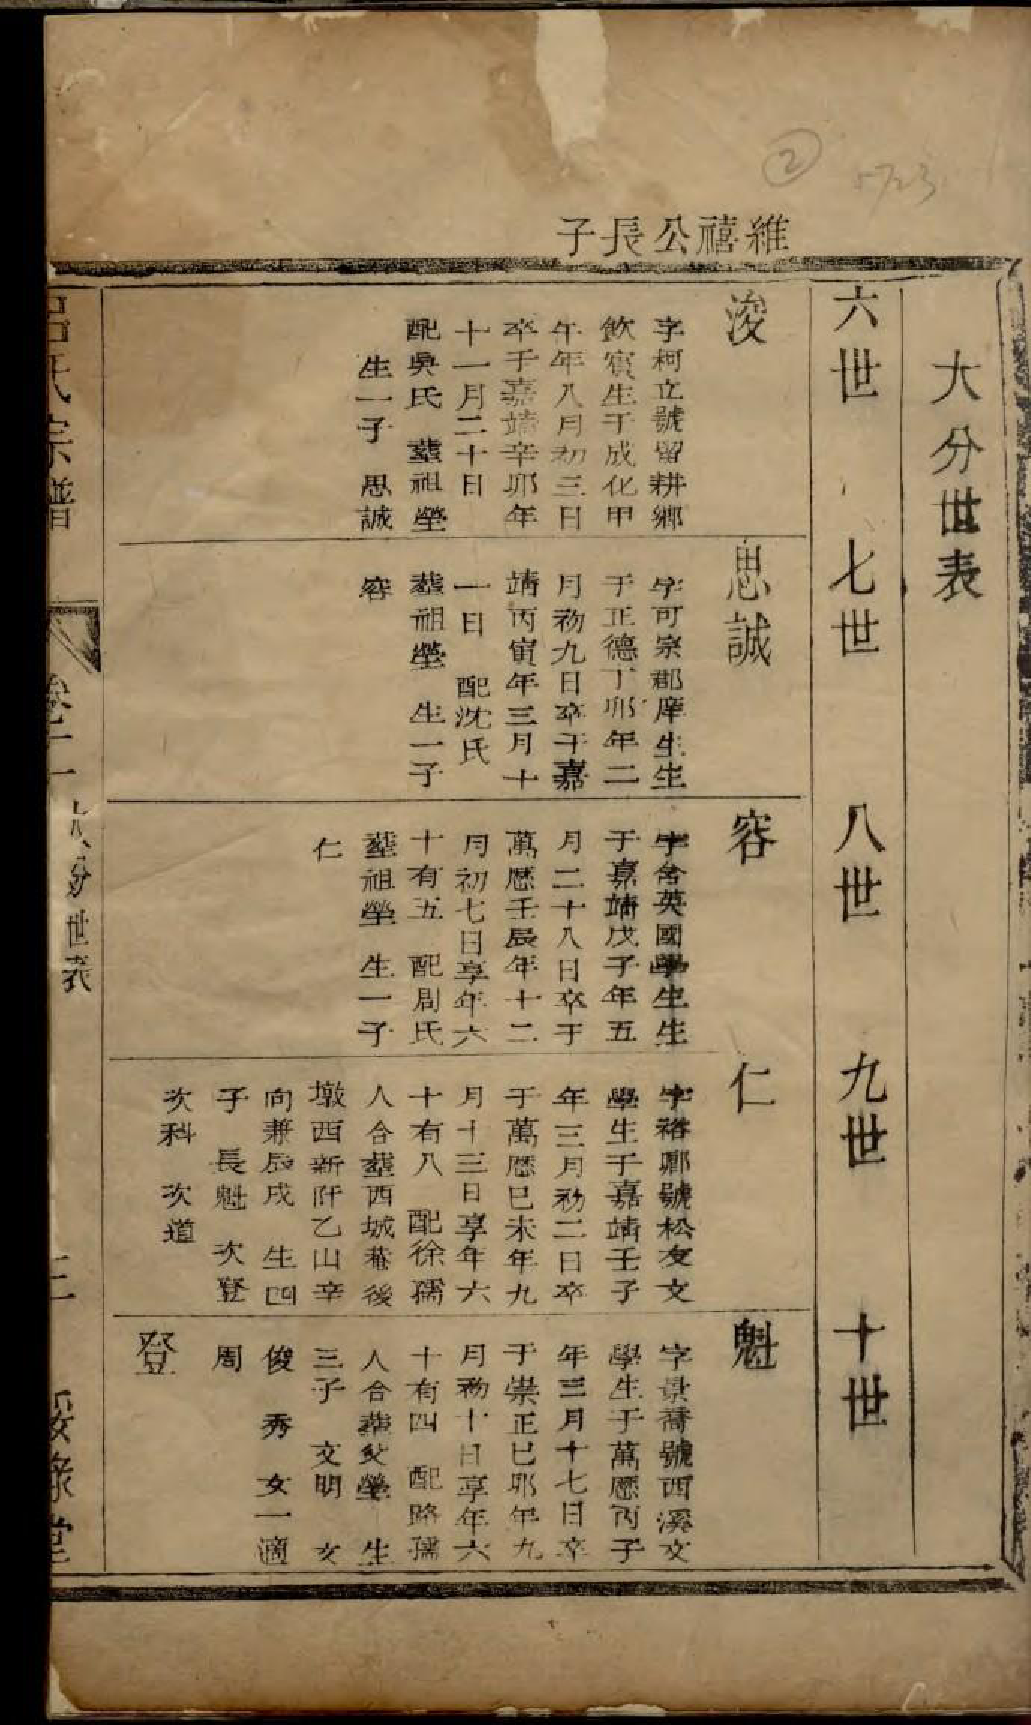 維禧公長子
大分世表
六世
七世
八世
九世
十世
浚
字柯立號留耕鄉
飲賓生于成化甲
午年八月初三日
卒于嘉靖辛卯年
十一月二十日
配吳氏 葬祖塋
生一子 思誠
思誠
字可宗郡庠生生
于正德丁卯年二
月初九日卒于嘉
靖丙寅年三月十
一日 配沈氏
葬祖塋 生一子
容
容
字舍英國學生生
于嘉靖戊子年五
月二十八日卒于
萬歷壬辰年十二
月初七日享年六
十有五 配周氏
葬祖塋 生一子
仁
仁
字裕卿號松友文
學生于嘉靖壬子
年三月初二日卒
于萬歷已未年九
月十三日享年六
十有八 配徐孺
人合葬西城菴後
墩西新阡乙山辛
向兼辰戌 生四
子 長魁 次登
次科 次道
魁
字景喬號西溪文
學生于萬歷丙子
年三月十七日卒
于崇正已卯年九
月初十日享年六
十有四 配路孺
人合葬父塋 生
三子 文明 文
俊 秀 女一適
周
登
呂氏宗譜
卷二
大分世表
三